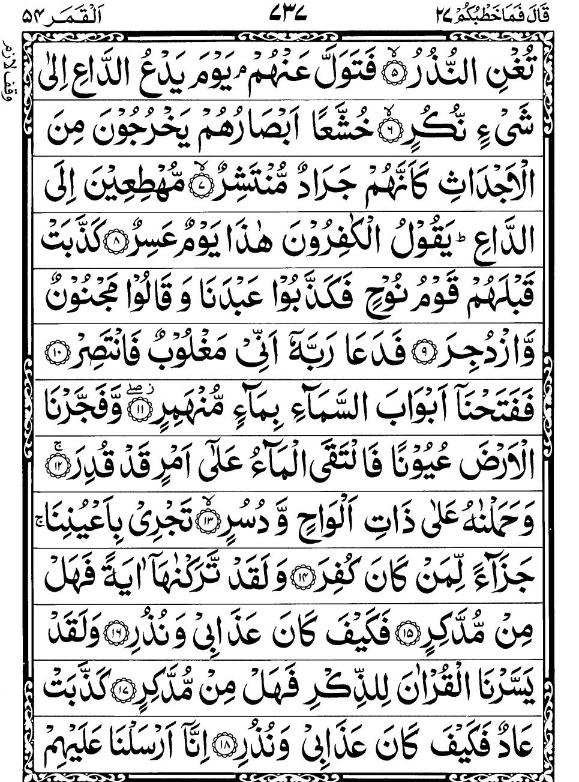 قَالَ فَمَاخَطْبُكُمْ ٢٧ ٧٣٧ اَلْقَمَر ٥٤
وقف لازم
تُغْنِ النُّذُرُ ۙ﴿۵﴾ فَتَوَلَّ عَنْهُمْ ۘ يَوْمَ يَدْعُ الدَّاعِ اِلٰى
شَىْءٍ نُّكُرٍ ۙ﴿۶﴾ خُشَّعًا اَبْصَارُهُمْ يَخْرُجُوْنَ مِنَ
الْاَجْدَاثِ كَاَنَّهُمْ جَرَادٌ مُّنْتَشِرٌ ۙ﴿۷﴾ مُّهْطِعِيْنَ اِلَى
الدَّاعِ ؕ يَقُوْلُ الْكٰفِرُوْنَ هٰذَا يَوْمٌ عَسِرٌ ﴿۸﴾ كَذَّبَتْ
قَبْلَهُمْ قَوْمُ نُوْحٍ فَكَذَّبُوْا عَبْدَنَا وَ قَالُوْا مَجْنُوْنٌ
وَّازْدُجِرَ ﴿۹﴾ فَدَعَا رَبَّهٗۤ اَنِّىْ مَغْلُوْبٌ فَانْتَصِرْ ﴿۱۰﴾
فَفَتَحْنَاۤ اَبْوَابَ السَّمَآءِ بِمَآءٍ مُّنْهَمِرٍ ۖ﴿۱۱﴾ وَّفَجَّرْنَا
الْاَرْضَ عُيُوْنًا فَالْتَقَى الْمَآءُ عَلٰٓى اَمْرٍ قَدْ قُدِرَ ۚ﴿۱۲﴾
وَحَمَلْنٰهُ عَلٰى ذَاتِ اَلْوَاحٍ وَّ دُسُرٍ ۙ﴿۱۳﴾ تَجْرِىْ بِاَعْيُنِنَا ۚ
جَزَآءً لِّمَنْ كَانَ كُفِرَ ﴿۱۴﴾ وَ لَقَدْ تَّرَكْنٰهَاۤ اٰيَةً فَهَلْ
مِنْ مُّدَّكِرٍ ﴿۱۵﴾ فَكَيْفَ كَانَ عَذَابِىْ وَ نُذُرِ ﴿۱۶﴾ وَلَقَدْ
يَسَّرْنَا الْقُرْاٰنَ لِلذِّكْرِ فَهَلْ مِنْ مُّدَّكِرٍ ﴿۱۷﴾ كَذَّبَتْ
عَادٌ فَكَيْفَ كَانَ عَذَابِىْ وَنُذُرِ ﴿۱۸﴾ اِنَّاۤ اَرْسَلْنَا عَلَيْهِمْ